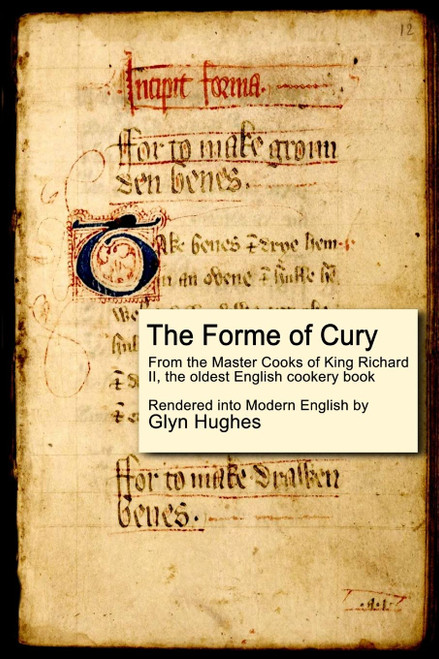 12
Incipit forma.
ffor to make groun
den benes.
Take benes & drye hem
in an ovene & hulle he
The Forme of Cury
From the Master Cooks of King Richard
II, the oldest English cookery book
Rendered into Modern English by
Glyn Hughes
ffor to make Drawen
benes.